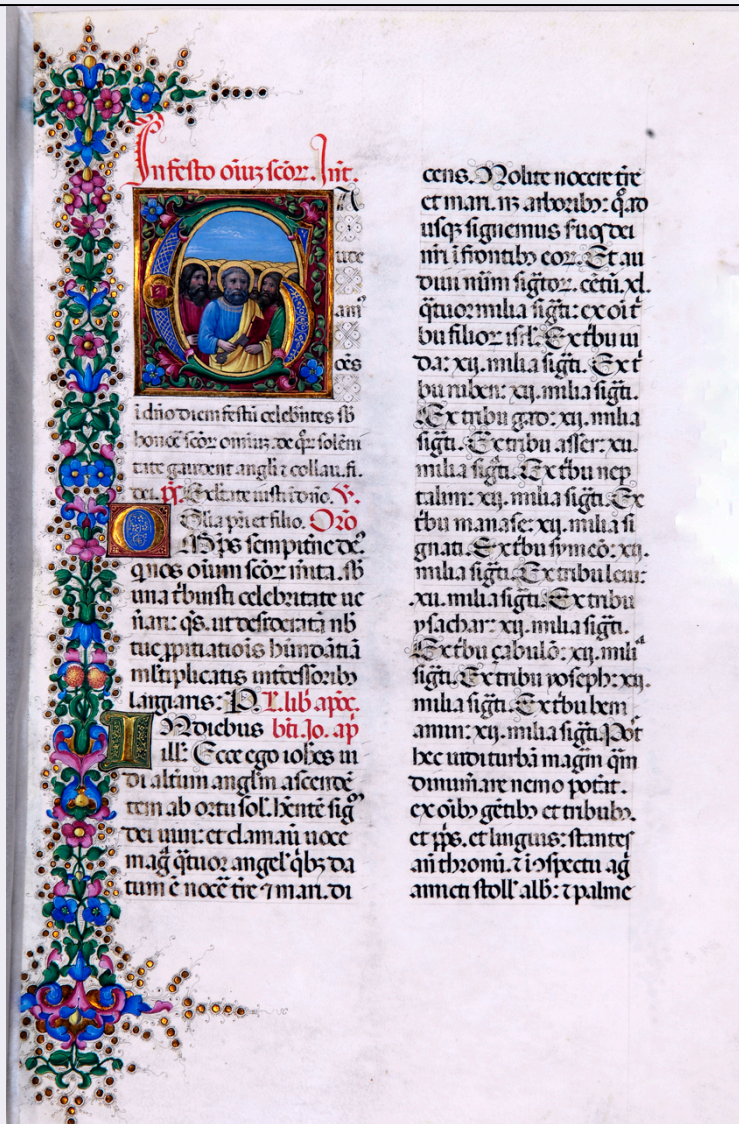 In festo oiuz scor. Int.
A
ute
am
ces
i dno diem festu celebrites sb
honoe scor omiuz. de qr solени
tate gaudent angli ⁊ collau. fi.
dei. ps. Exltate iusti i dno. V.
Glia pri et filio. Oro
Mps sempitne de9
qui nos oium scor mita. sb
una tbuisti celebritate ue
nari: qs. ut desiderata nb
tue ppitiatiois hundatia
mltiplicatis intcessorib9
largiaris: P. L. lib. apoc.
In diebus bti. Jo. ap
ill: Ecce ego iohes ui
di alterum anglm ascende
tem ab ortu sol. hente sig
dei uiui: et clamau uoce
mag qtuor angel qb3 da
tum e noce tre ⁊ mari. di
cens. Nolite nocere tre
et mari. n3 arborib9: q. ad
usq3 signemus fuos dei
nri i frontib9 eor. Et au
diui num sigtor. cetu. xl.
qtuor milia sigti: ex oi t
bu filior isrl. Ex tbu iu
da: xij. milia sigti. Ex t
bu ruben: xij. milia sigti.
Ex tribu gad: xij. milia
sigti. Ex tribu asser: xij.
milia sigti. Ex tbu nep
talim: xij. milia sigti. Ex
tbu manase: xij. milia si
gnati. Ex tbu symeo: xij.
milia sigti. Ex tribu leui:
xij. milia sigti. Ex tribu
ysachar: xij. milia sigti.
Ex tbu çabulo: xij. mili
sigti. Ex tribu yoseph: xij.
milia sigti. Ex tbu beni
amin: xij. milia sigti. Pot
hec uidi turba magm qm
dinumare nemo potat.
ex oib9 getib9 et tribub9.
et pps. et linguis: stantes
an thronu. ⁊ i ospectu ag
amicti stoll alb: ⁊ palme